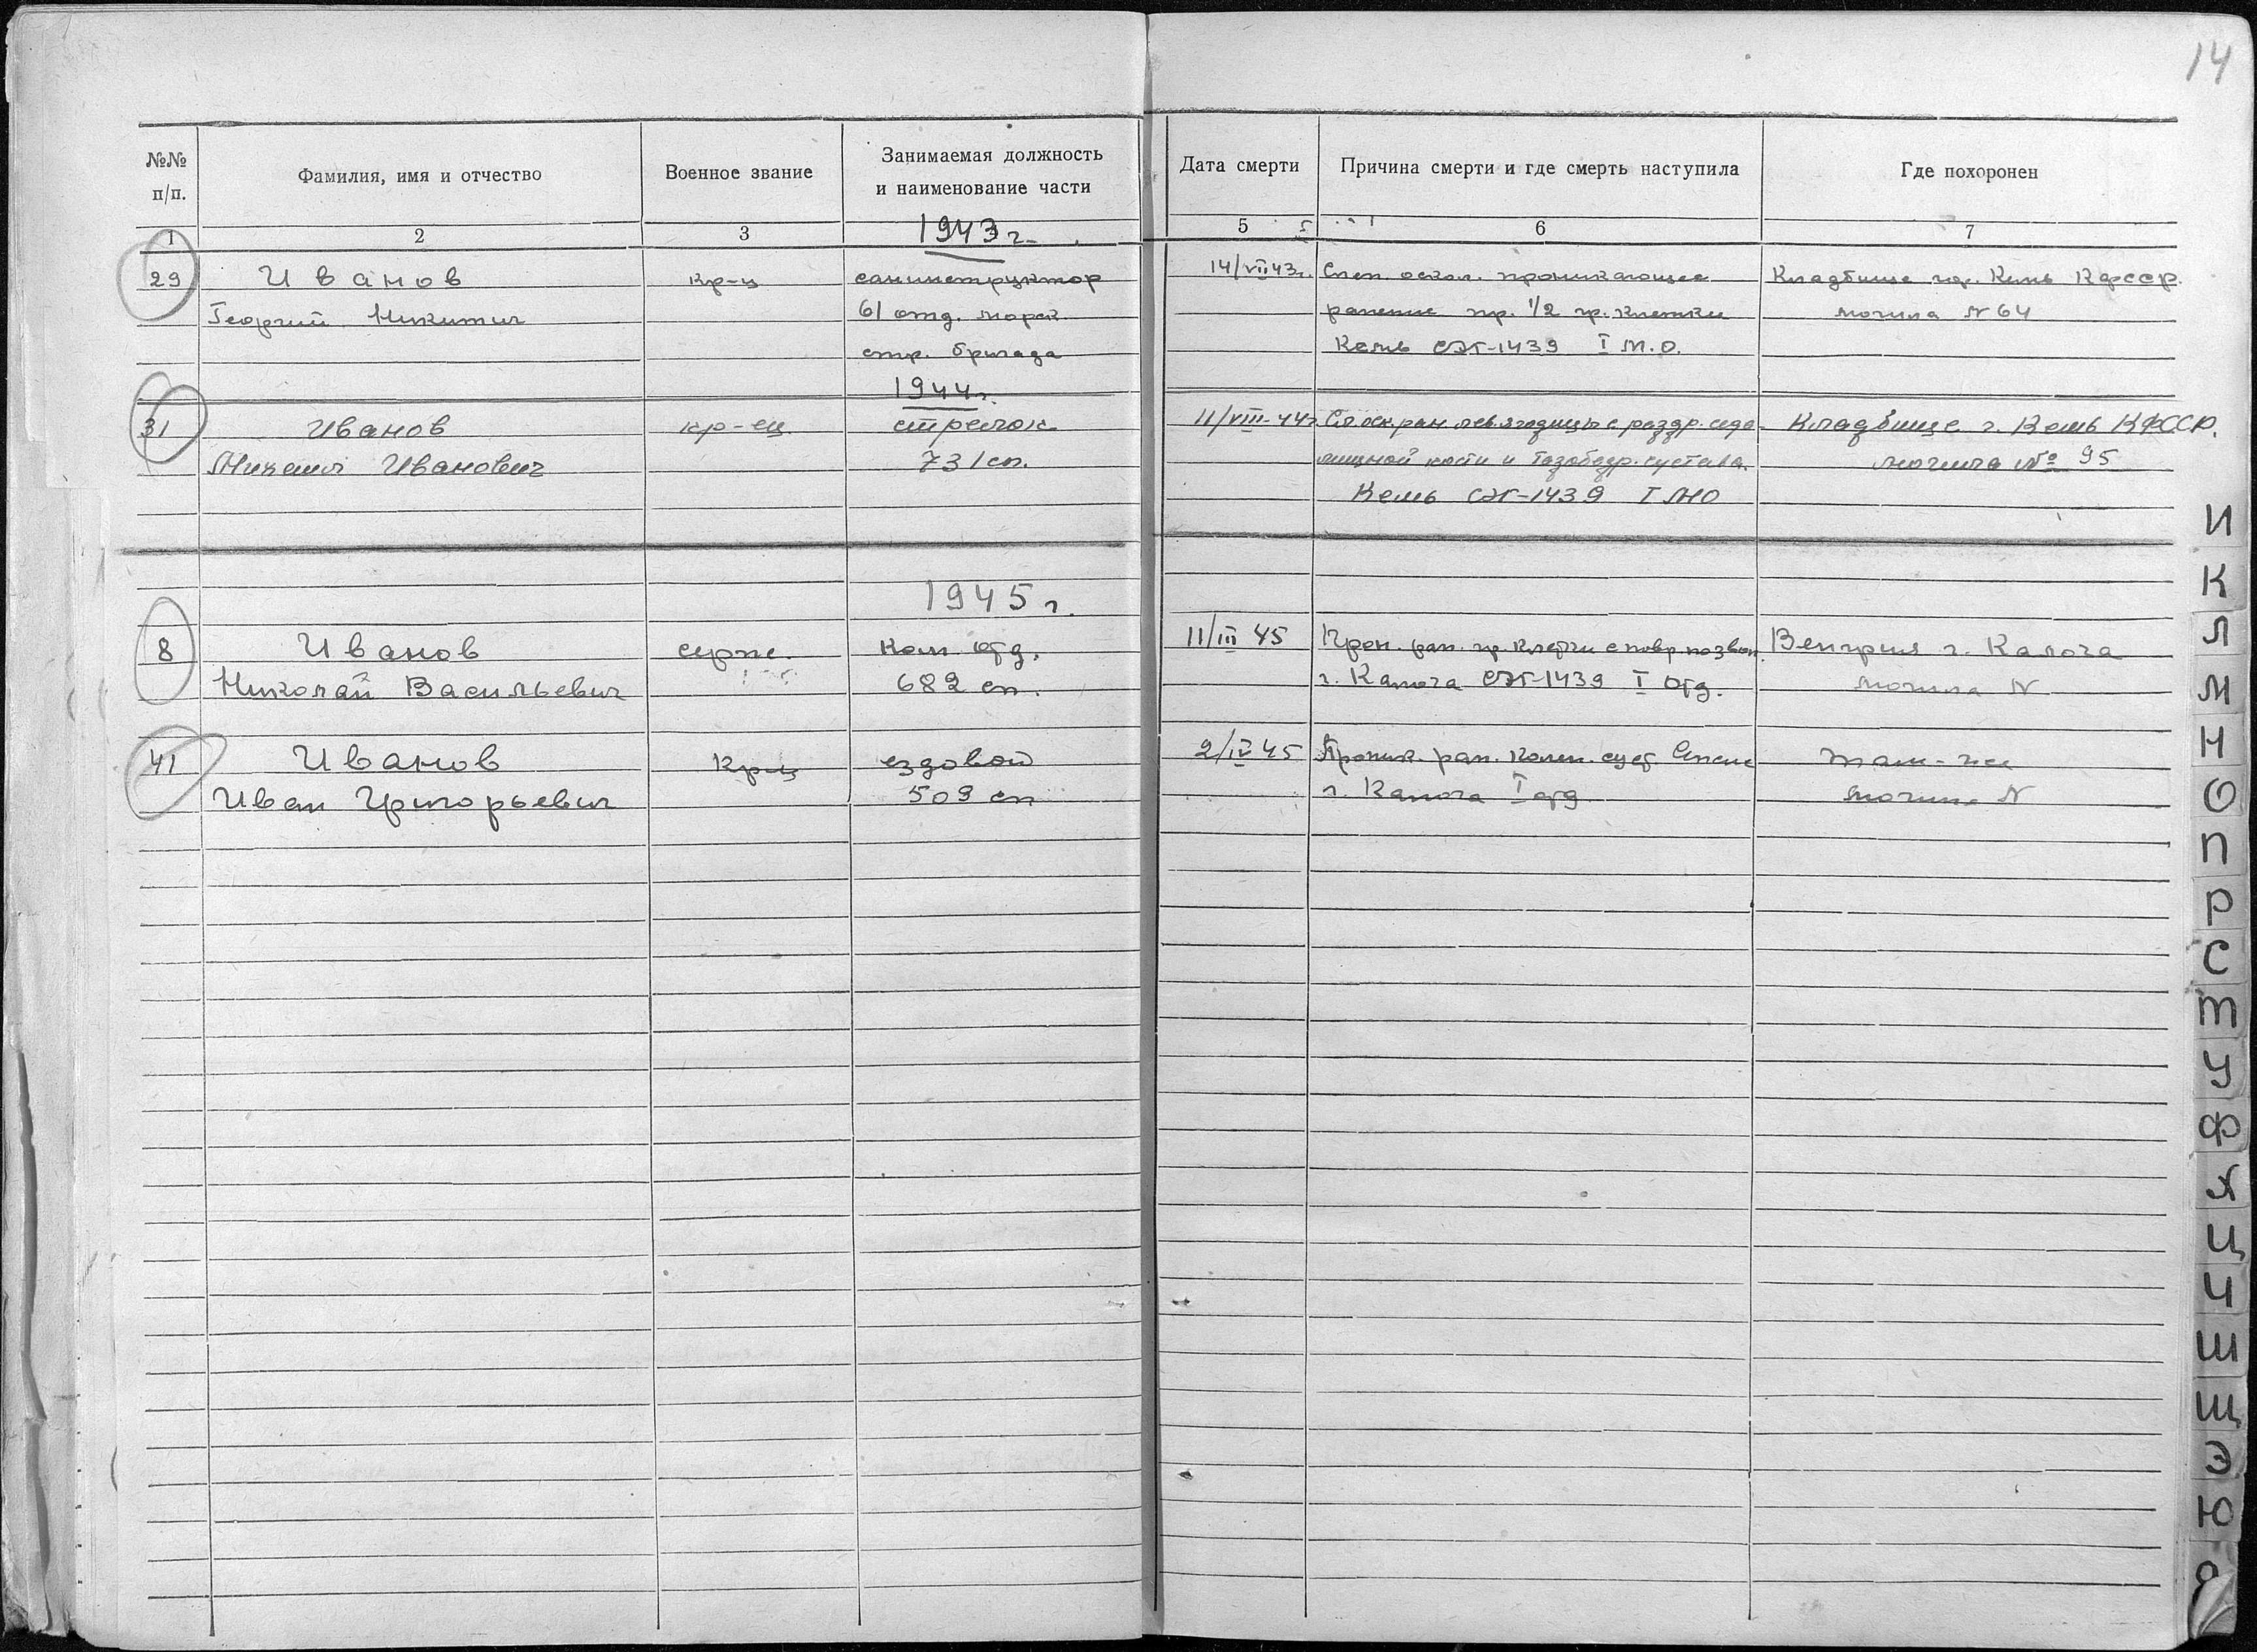 14
№№ п/п.
Фамилия, имя и отчество
Военное звание
Занимаемая должность
и наименование части
Дата смерти
Причина смерти и где смерть наступила
Где похоронен
1 2 3 5 6 7
1943 г.
29 Иванов кр-ц санинструктор 14/VII 43г. Слеп. оскол. проникающее Кладбище гор. Кемь КФССР.
Георгий Никитич 61 отд. морск. ранение пр. 1/2 гр. клетки могила N 64
стр. бригада Кемь СЭГ-1439 I М.О.
1944 г.
31 Иванов кр-ец стрелок 11/VIII-44г Сл. оск ран лев. ягодицы с раздр. седа- Кладбище г. Кемь КФССР.
Михаил Иванович 731 сп. лищной кости и тазобедр. сустава. могила № 95
Кемь СЭГ-1439 I МО
1945 г.
8 Иванов серж. Ком. отд. 11/III 45 ран. гр. клетки с повр. позвон. Венгрия г. Калоча
Николай Васильевич 682 сп. г. Калоча СЭГ-1439 I отд. могила N
41 Иванов Крц ездовой 2/IV 45 Проник. ран. колен. суст. Сепсис там-же
Иван Григорьевич 509 сп г. Калоча I отд могила N
И
К
Л
М
Н
О
П
Р
С
Т
У
Ф
Х
Ц
Ч
Ш
Щ
Э
Ю
Я